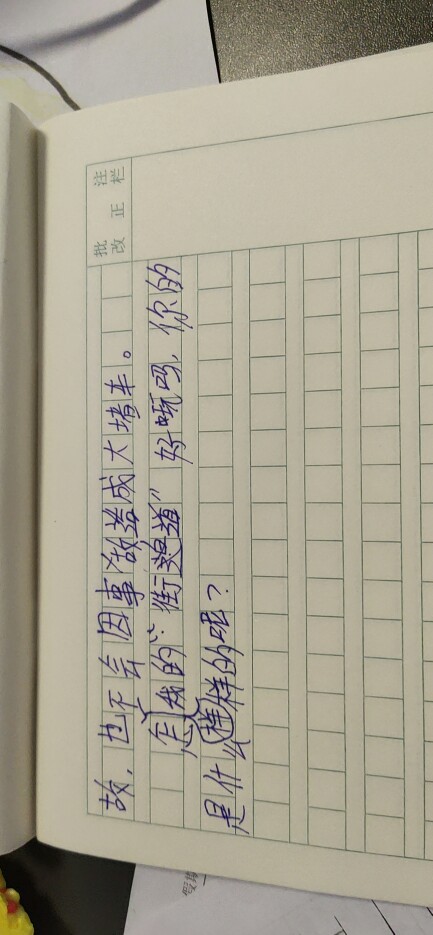 批 注
改 正 栏
故，也不会因事故造成大堵车。
怎我的“街道”好玩吗，你的
是什么样的呢？